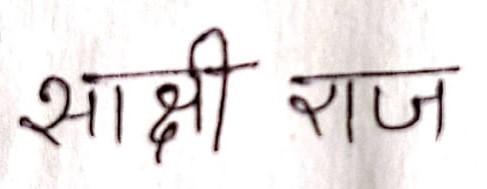 साक्षी राज